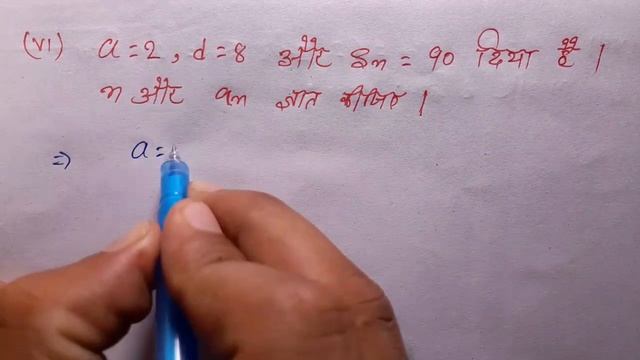 (vi) a=2, d=8 और Sn = 90 दिया है।
n और an ज्ञात कीजिए।
⇒ a=